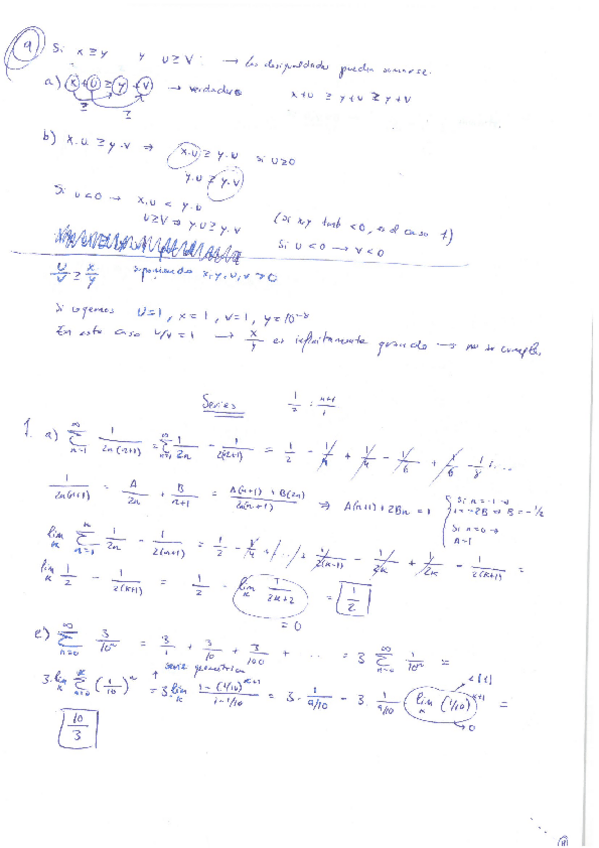 9 Si x ≥ y y u ≥ v: → Las desigualdades pueden sumarse.
a) x + u ≥ y + v → verdadero x+u ≥ y+u ≥ y+v
≥ ≥
b) x.u ≥ y.v ⇒ x.u ≥ y.u si u≥0
y.u ≥ y.v
Si u<0 → x.u < y.u
u≥v ⇒ y.u ≥ y.v (si x,y tamb <0, es el caso 1)
Si u<0 → v<0
u/v ≥ x/y suponiendo x,y,u,v > 0
Si cogemos u=1, x=1, v=1, y=10^-8
En este caso u/v = 1 → x/y es infinitamente grande → no se cumple.
Series 1/2 : n+1/1
1. a) ∞Σn=1 1/2n(n+1) = ∞Σn=1 1/2n - 1/2(n+1) = 1/2 - 1/4 + 1/4 - 1/6 + 1/6 - 1/8 + ...
1/2n(n+1) = A/2n + B/n+1 = A(n+1)+B(2n)/2n(n+1) ⇒ A(n+1)+2Bn = 1 { Si n=-1 →
1=-2B ⇒ B=-1/2
Si n=0 →
A=1
lim k kΣn=1 1/2n - 1/2(n+1) = 1/2 - 1/4 + /.../ + 1/2(k-1) - 1/2k + 1/2k - 1/2(k+1) =
lim k 1/2 - 1/2(k+1) = 1/2 - lim k 1/2k+2 = 1/2
= 0
e) ∞Σn=0 3/10^n = 3/1 + 3/10 + 3/100 + ... = 3 ∞Σn=0 1/10^n =
serie geométrica <|1|
3.lim k kΣn=0 (1/10)^n = 3.lim k 1-(1/10)^k+1/1-1/10 = 3. 1/9/10 - 3. 1/9/10 . lim k (1/10)^k+1 =
→ 0
10/3